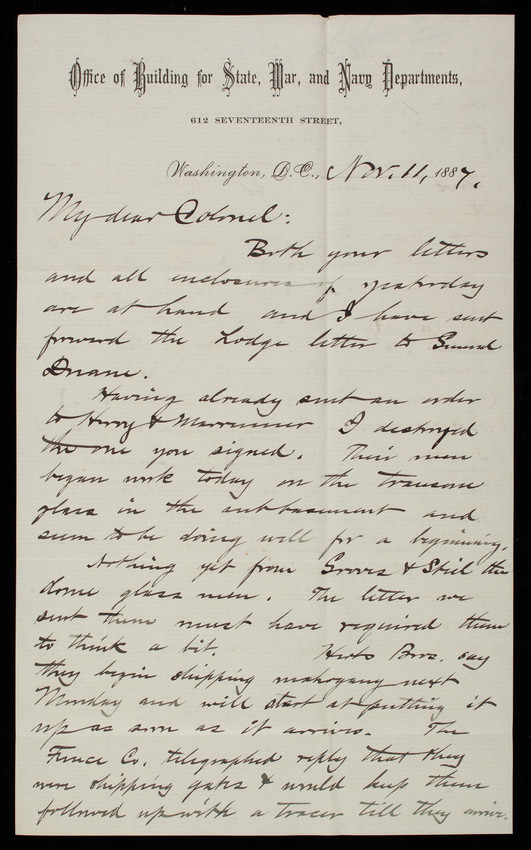 Office of Building for State, War, and Navy Departments,
612 SEVENTEENTH STREET,
Washington, D.C., Nov. 11, 1887.
My dear Colonel:
Both your letters
and all enclosures of yesterday
are at hand and I have sent
forward the Lodge letter to General
Duane.
Having already sent an order
to Henry & I destroyed
the one you signed. Their men
began work today on the transom
glass in the subbasement and
seem to be doing well for a beginning.
Nothing yet from Groves & Steil the
dome glass men. The letter we
sent them must have required them
to think a bit. Herts Bros. say
they begin shipping mahogany next
Monday and will start at putting it
up as soon as it arrives. The
Fence Co. telegraphed reply that they
were shipping gates & would keep them
followed up with a tracer till they arrive.